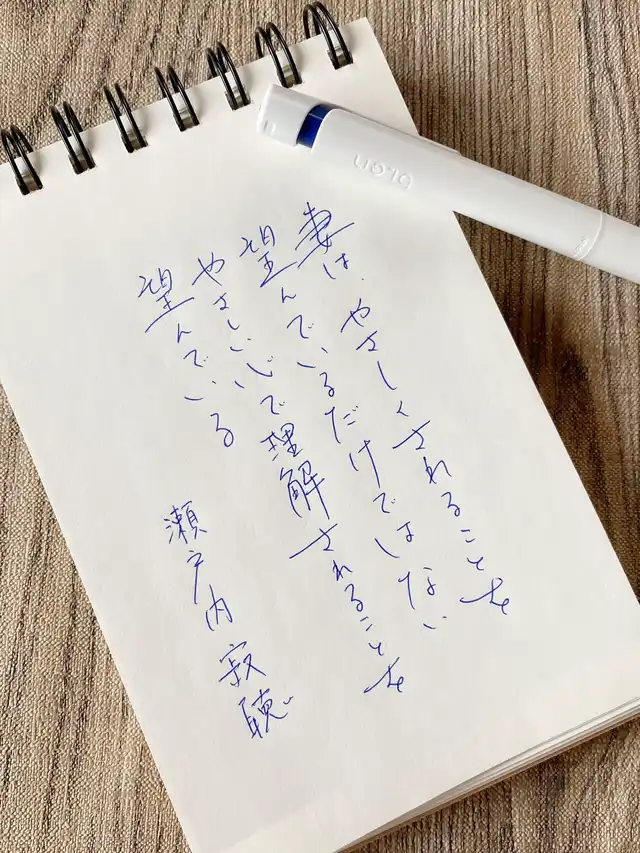 妻は、やさしくされることを
望んでいるだけではない
やさしい心で理解されることを
望んでいる
瀬戸内寂聴
bLen